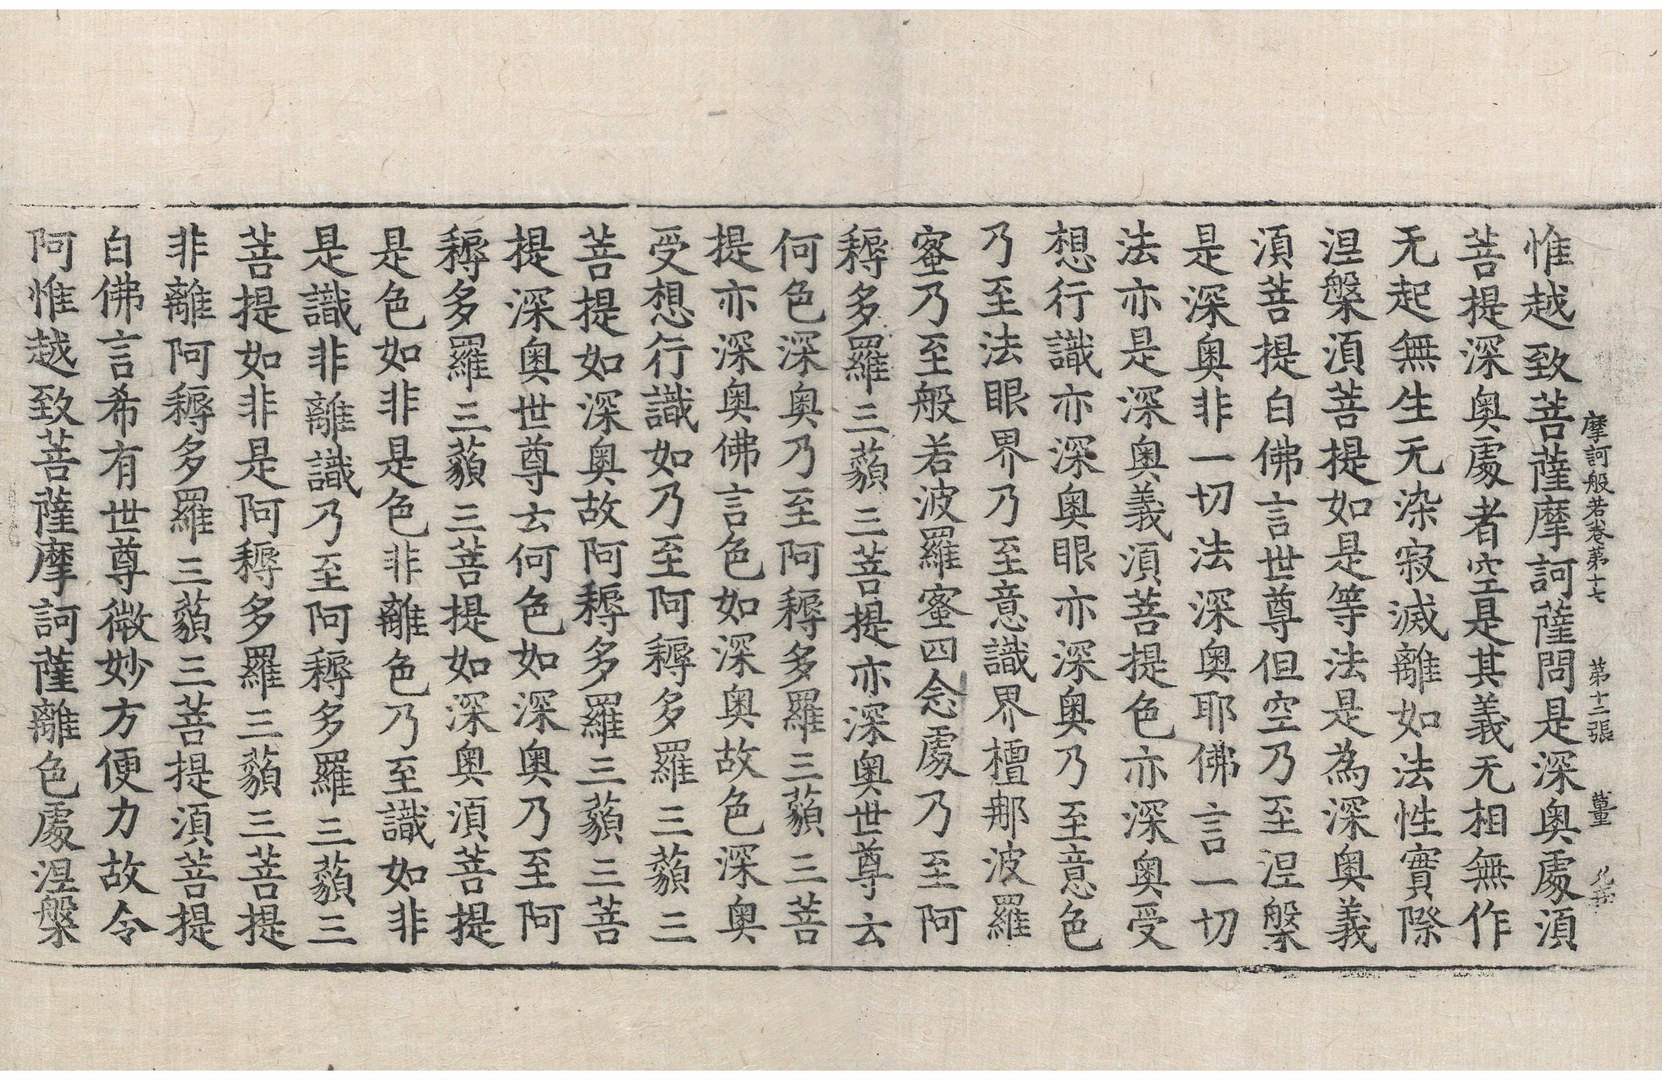 摩訶般若卷第十七 第十二張 董
惟越致菩薩摩訶薩問是深奧處湏
菩提深奧處者空是其義无相無作
无起無生无染寂滅離如法性實際
涅槃湏菩提如是等法是為深奧義
湏菩提白佛言世尊但空乃至涅槃
是深奧非一切法深奧耶佛言一切
法亦是深奧義湏菩提色亦深奧受
想行識亦深奧眼亦深奧乃至意色
乃至法眼界乃至意識界檀那波羅
蜜乃至般若波羅蜜四念處乃至阿
耨多羅三藐三菩提亦深奧世尊云
何色深奧乃至阿耨多羅三藐三菩
提亦深奧佛言色如深奧故色深奧
受想行識如乃至阿耨多羅三藐三
菩提如深奧故阿耨多羅三藐三菩
提深奧世尊云何色如深奧乃至阿
耨多羅三藐三菩提如深奧湏菩提
是色如非是色非離色乃至識如非
是識非離識乃至阿耨多羅三藐三
菩提如非是阿耨多羅三藐三菩提
非離阿耨多羅三藐三菩提湏菩提
白佛言希有世尊微妙方便力故令
阿惟越致菩薩摩訶薩離色處涅槃